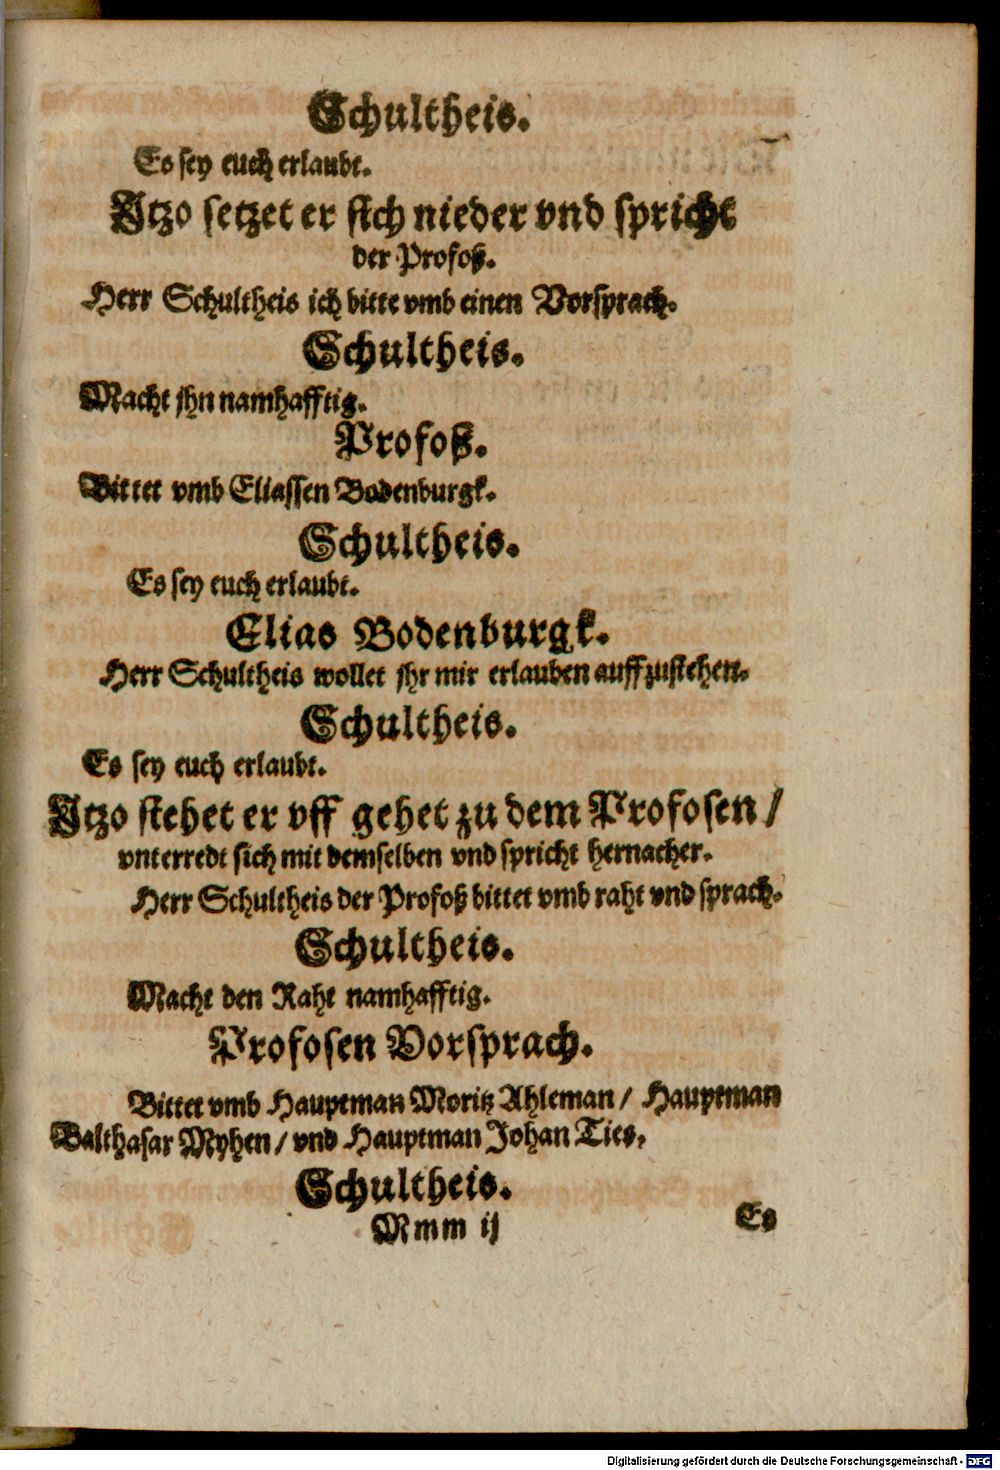 Schultheis.
Es sey euch erlaubt.
Itzo setzet er sich nieder vnd spricht
der Profoß.
Herr Schultheis ich bitte vmb einen Vorsprach.
Schultheis.
Macht jhn namhafftig.
Profoß.
Bittet vmb Eliassen Bodenburgk.
Schultheis.
Es sey euch erlaubt.
Elias Bodenburgk.
Herr Schultheis wollet jhr mir erlauben auffzustehen.
Schultheis.
Es sey euch erlaubt.
Itzo stehet er vff gehet zu dem Profosen /
vnterredt sich mit demselben vnd spricht hernacher.
Herr Schultheis der Profoß bittet vmb raht vnd sprach.
Schultheis.
Macht den Raht namhafftig.
Profosen Vorsprach.
Bittet vmb Hauptman Moritz Ahleman / Hauptman
Balthasar Myhen / vnd Hauptman Johan Ties.
Schultheis.
Mmm ij
Es
Digitalisierung gefördert durch die Deutsche Forschungsgemeinschaft - DFG